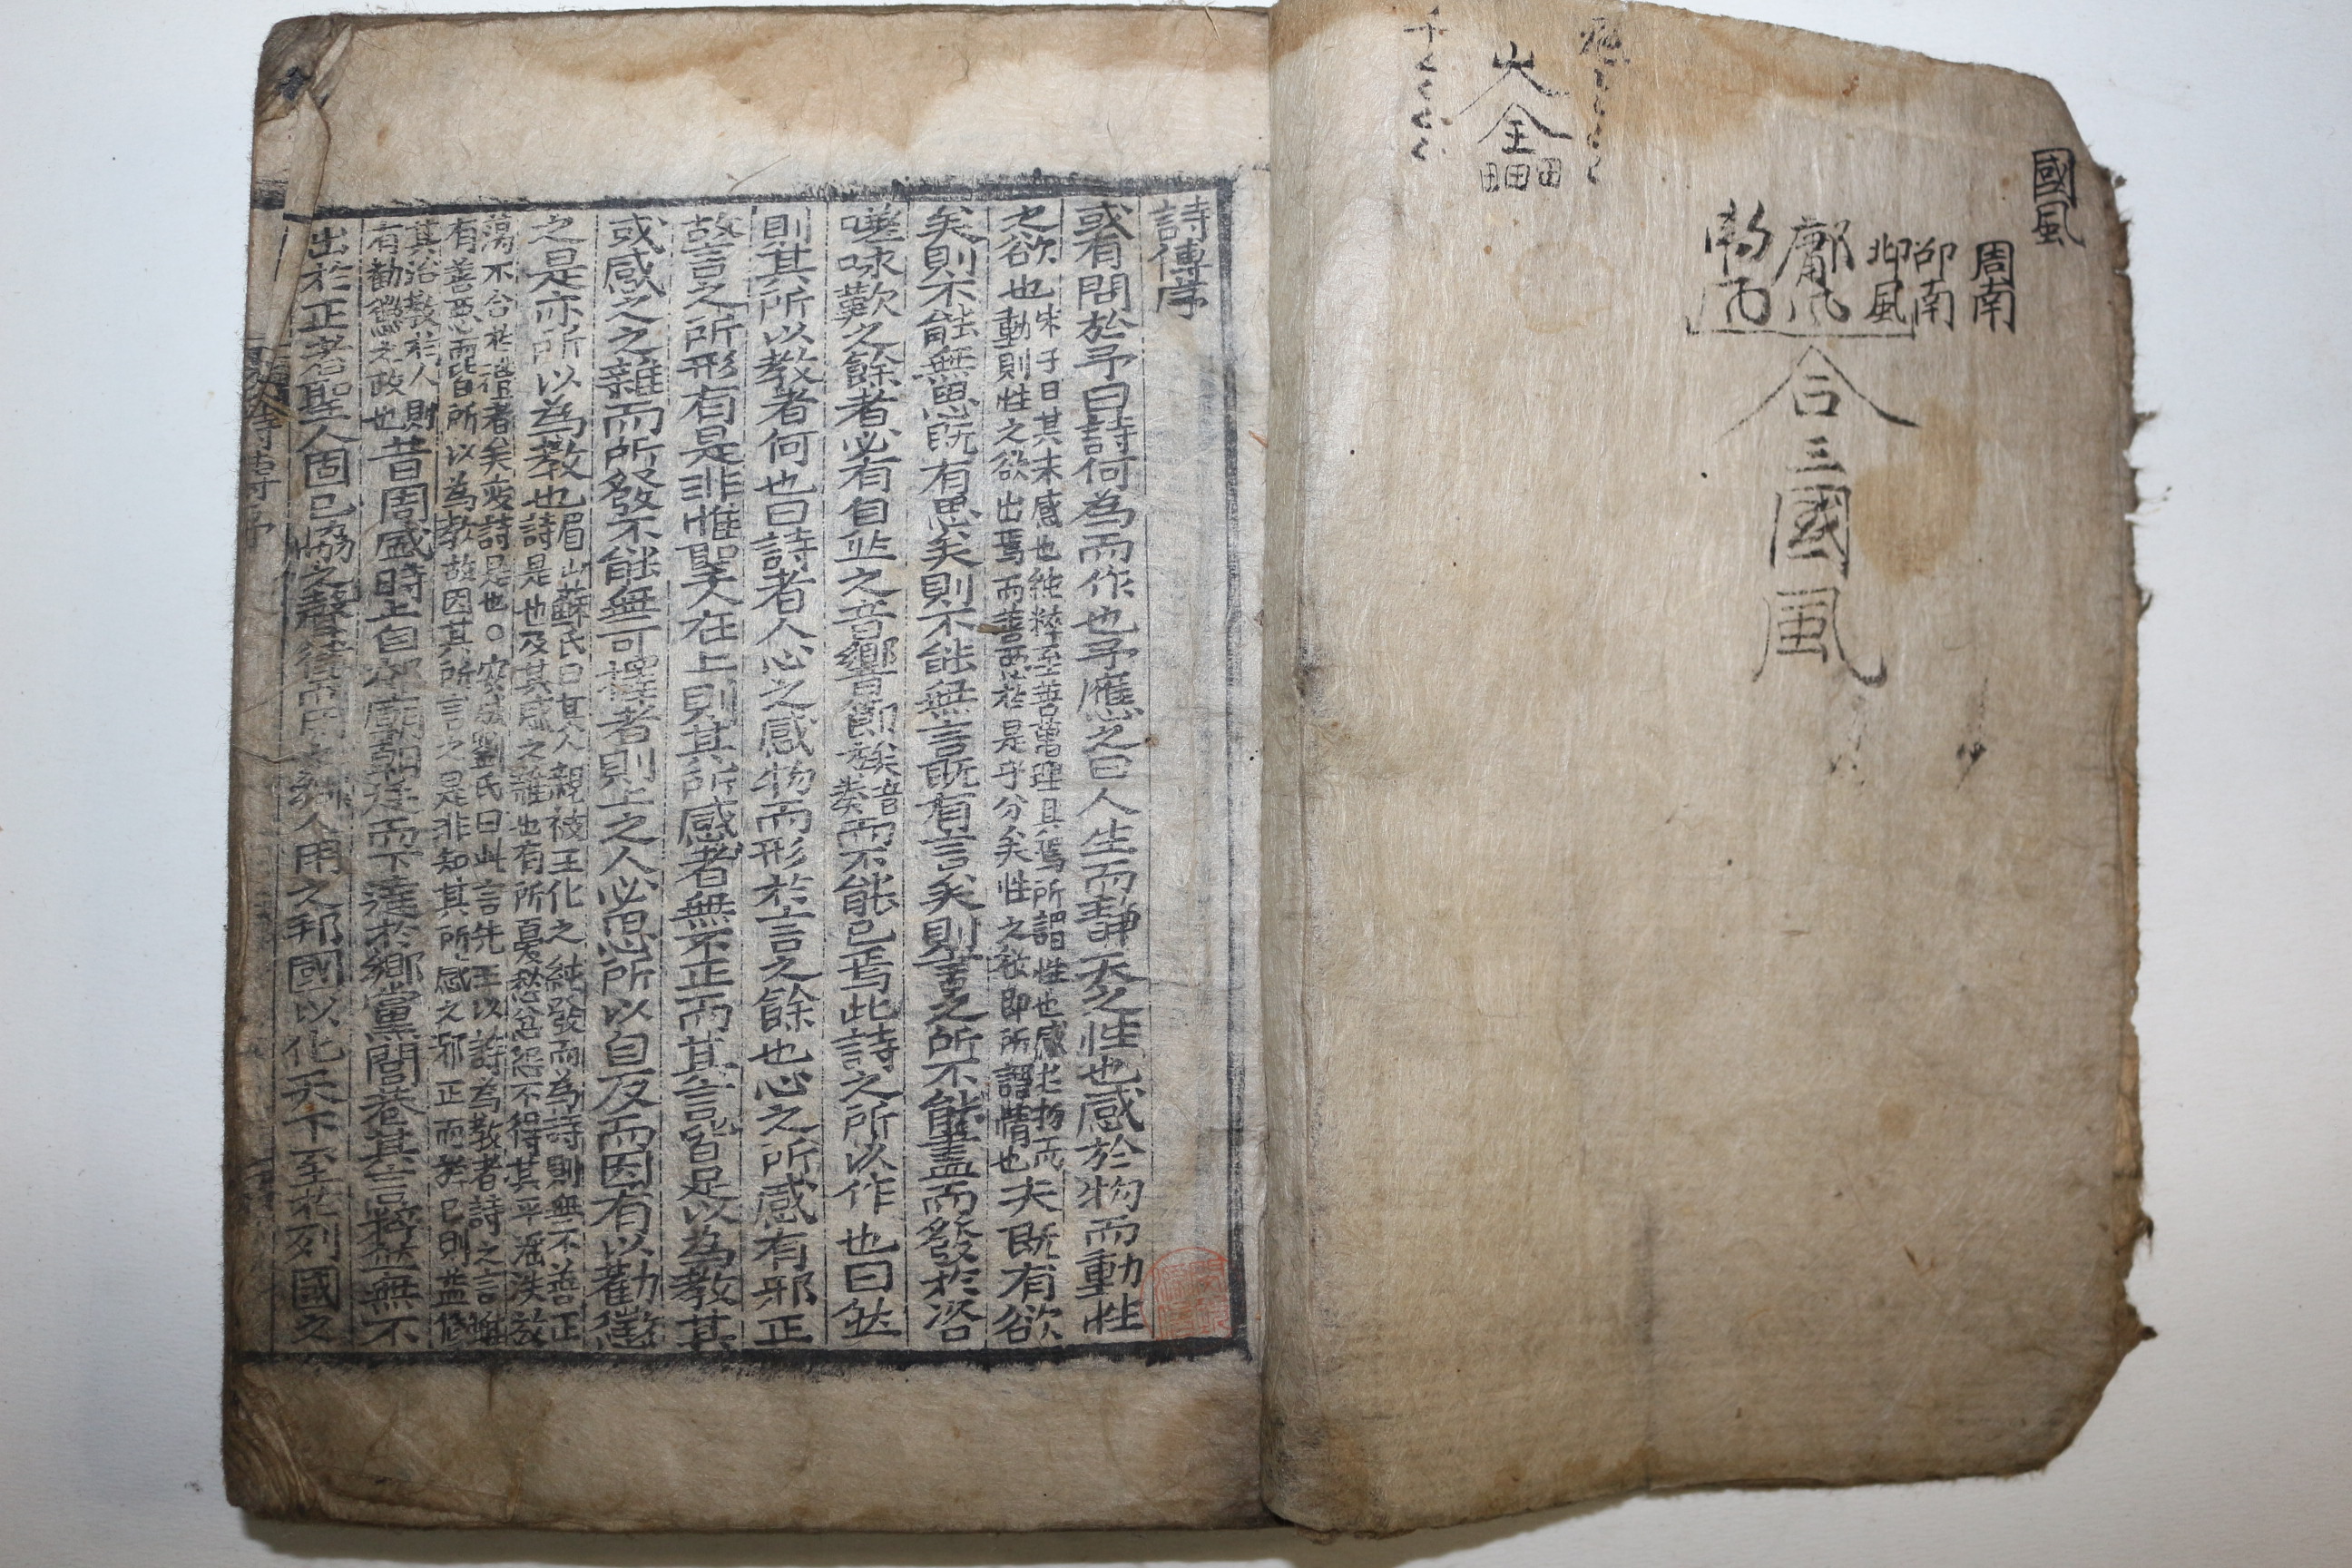 國風
周南
卲南
邶風
鄘風
合三國風
大全
詩傳序
或有問於予曰詩何為而作也予應之曰人生而靜天之性也感於物而動性
之欲也朱子曰其未感也純粹至善萬理具焉所謂性也感於物而動則性之欲出焉而善惡於是乎分矣性之欲即所謂情也夫既有欲
矣則不能無思既有思矣則不能無言既有言矣則言之所不能盡而發於咨
嗟咏歎之餘者必有自然之音響節族音奏而不能已焉此詩之所以作也曰然
則其所以教者何也曰詩者人心之感物而形於言之餘也心之所感有邪正
故言之所形有是非惟聖人在上則其所感者無不正而其言皆足以為教其
或感之之雜而所發不能無可擇者則上之人必思所以自反而因有以勸懲
之是亦所以為教也眉山蘇氏曰其人親被王化之純發而為詩則無不善正詩是也及其感之雜也有所憂愁忿怨不得其平淫泆放
蕩不合於禮者矣變詩是也○安成劉氏曰此言先王以詩為教者詩之言惟有善惡而皆所以為教故因其所言之是非知其所感之邪正而於己則益修
其治教於人則有勸懲之政也昔周盛時上自郊廟朝廷而下達於鄉黨閭巷其言粹然無不
出於正者聖人固已協之聲律而用之鄉人用之邦國以化天下至於列國之